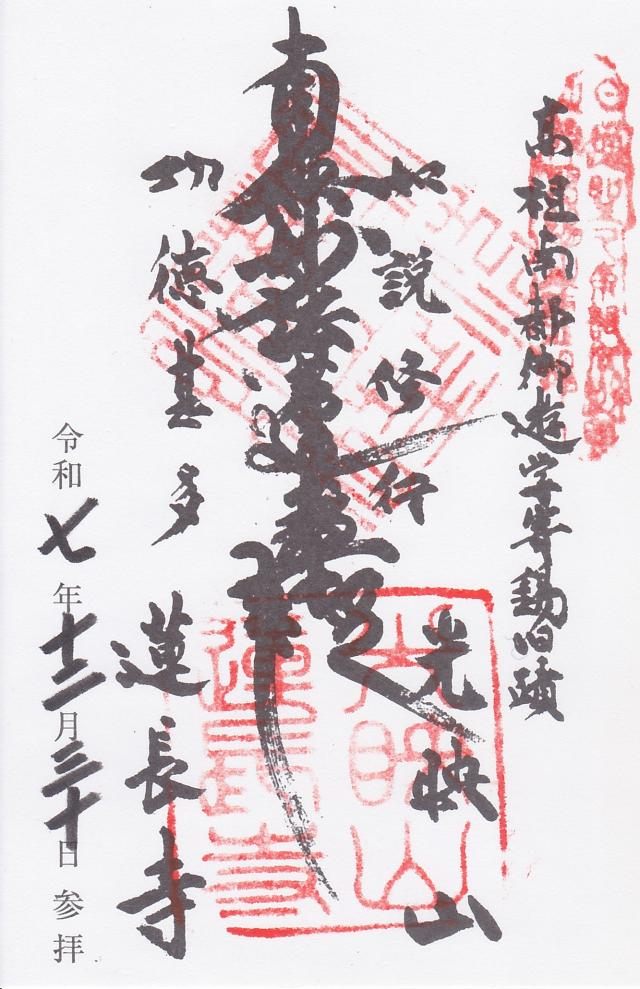 高祖南都御遊学寄錫旧蹟
如説修行
光映山
南無妙法蓮華経
功徳甚多
蓮長寺
令和七年十二月三十日参拝
光映山
蓮長寺